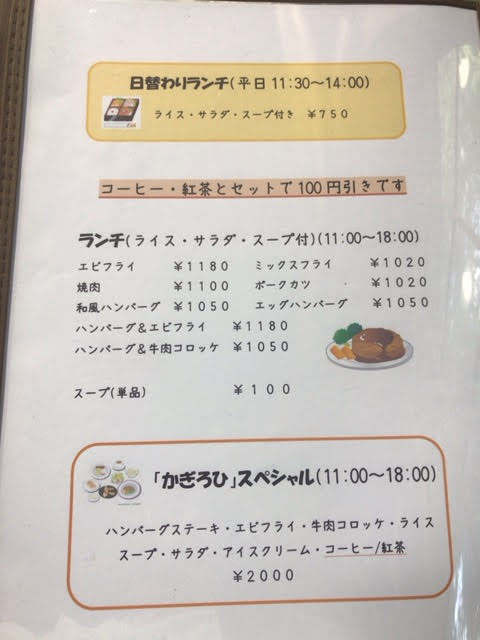 日替わりランチ(平日 11:30～14:00)
ライス・サラダ・スープ付き ￥750
コーヒー・紅茶とセットで100円引きです
ランチ(ライス・サラダ・スープ付)(11:00～18:00)
エビフライ ￥1180 ミックスフライ ￥1020
焼肉 ￥1100 ポークカツ ￥1020
和風ハンバーグ ￥1050 エッグハンバーグ ￥1050
ハンバーグ＆エビフライ ￥1180
ハンバーグ＆牛肉コロッケ ￥1050
スープ(単品) ￥100
「かぎろひ」スペシャル(11:00～18:00)
ハンバーグステーキ・エビフライ・牛肉コロッケ・ライス
スープ・サラダ・アイスクリーム・コーヒー/紅茶
￥2000